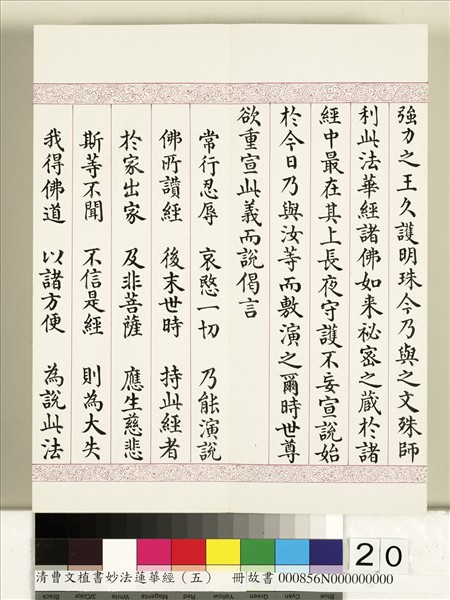 強力之王久護明珠今乃與之文殊師
利此法華經諸佛如来祕密之藏於諸
經中最在其上長夜守護不妄宣說始
於今日乃與汝等而敷演之爾時世尊
欲重宣此義而說偈言
常行忍辱 哀愍一切 乃能演說
佛所讚經 後末世時 持此經者
於家出家 及非菩薩 應生慈悲
斯等不聞 不信是經 則為大失
我得佛道 以諸方便 為說此法
20
清曹文植書妙法蓮華經（五） 冊故書 000856N000000000
Black 3/Color White Magenta Red Yellow Green Cyan Blue